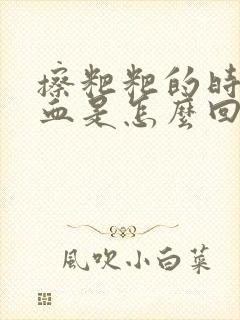 擦粑粑的時
血是怎麼回
風吹小白菜